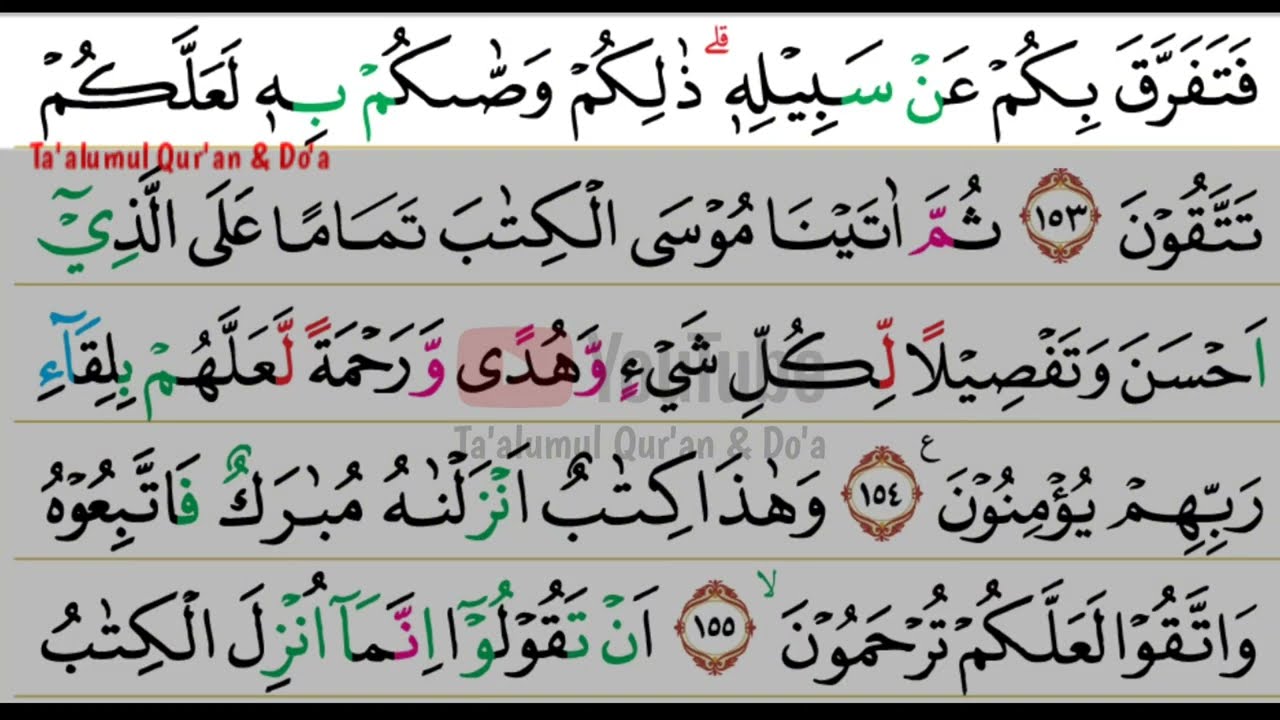 فَتَفَرَّقَ بِكُمْ عَنْ سَبِيْلِهٖ ۗ ذٰلِكُمْ وَصّٰىكُمْ بِهٖ لَعَلَّكُمْ
Ta'alumul Qur'an & Do'a
تَتَّقُوْنَ ١٥٣ ثُمَّ اٰتَيْنَا مُوْسَى الْكِتٰبَ تَمَامًا عَلَى الَّذِيْٓ
اَحْسَنَ وَتَفْصِيْلًا لِّكُلِّ شَيْءٍ وَّهُدًى وَّرَحْمَةً لَّعَلَّهُمْ بِلِقَاۤءِ
YouTube
Ta'alumul Qur'an & Do'a
رَبِّهِمْ يُؤْمِنُوْنَ ع ١٥٤ وَهٰذَا كِتٰبٌ اَنْزَلْنٰهُ مُبٰرَكٌ فَاتَّبِعُوْهُ
وَاتَّقُوْا لَعَلَّكُمْ تُرْحَمُوْنَ ۙ ١٥٥ اَنْ تَقُوْلُوْٓا اِنَّمَآ اُنْزِلَ الْكِتٰبُ